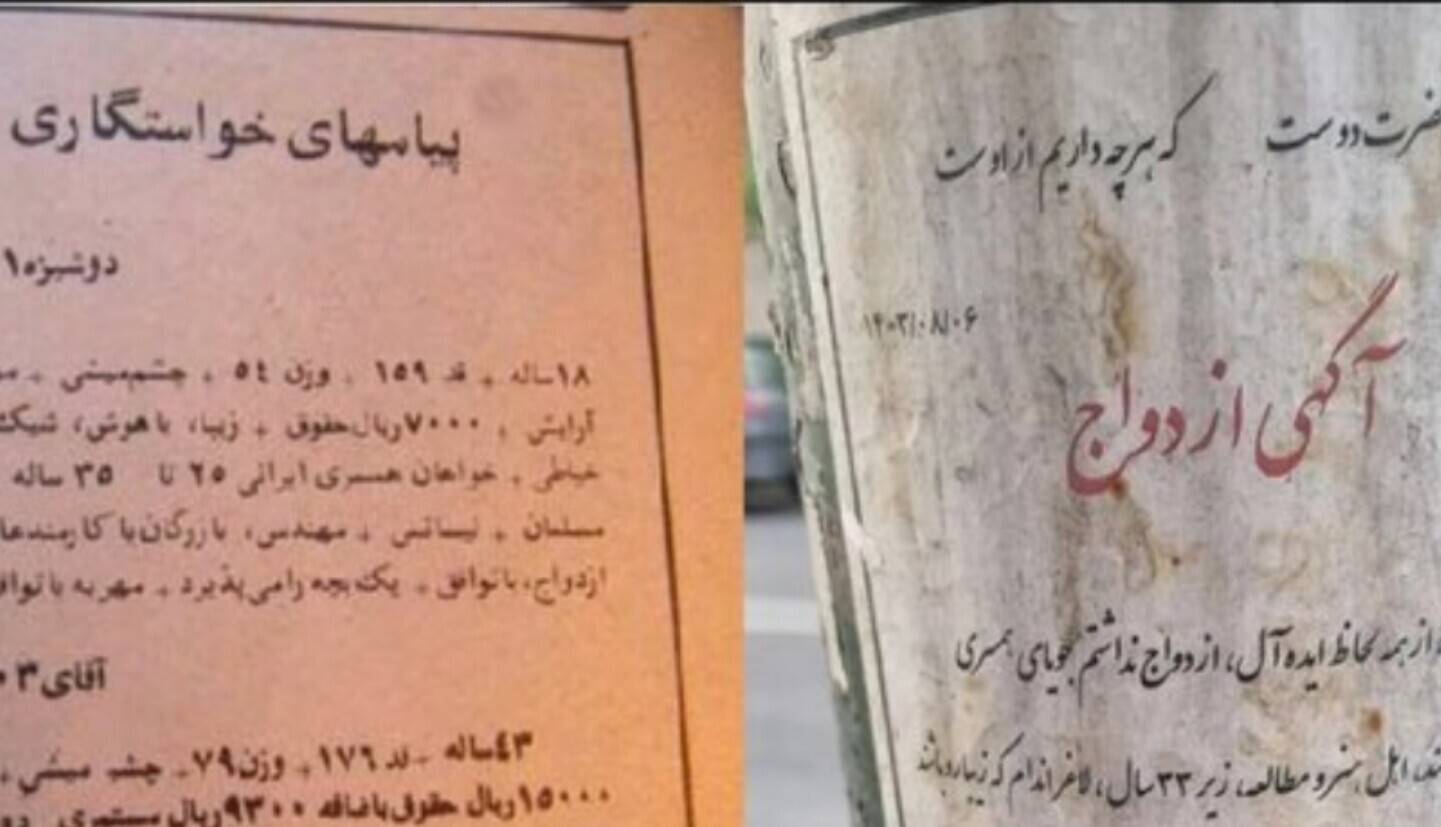 پیامهای خواستگاری
دوشیزه ۱
۱۸ساله ـ قد ۱۵۹ ـ وزن ۵٤ ـ چشم‌میشی ـ
آرایش ـ ۷۰۰۰ریال‌حقوق ـ زیبا، باهوش،
خیاطی ـ خواهان همسری ایرانی ۲۵ تا ۳۵ ساله
مسلمان ـ لیسانس ـ مهندس، بازرگان‌یا کارمندعا
ازدواج، باتوافق ـ یک‌بچه رامی‌پذیرد ـ مهریه باتواف
آقای ۳
٤۳ساله ـ قد ۱۷٦ ـ وزن ۷۹ ـ چشم میشی ـ
۱۵۰۰۰ریال حقوق‌باضافه ۹۳۰۰ریال‌مستمری
ضرت دوست که هرچه داریم از اوست
۱۴۰۳/۰۸/۰۶
آگهی ازدواج
از همه لحاظ ایده‌آل، ازدواج نداشتم جویای همسری
ند، اهل هنر و مطالعه، زیر ۳۳ سال، لاغر اندام که زیبارو باشد